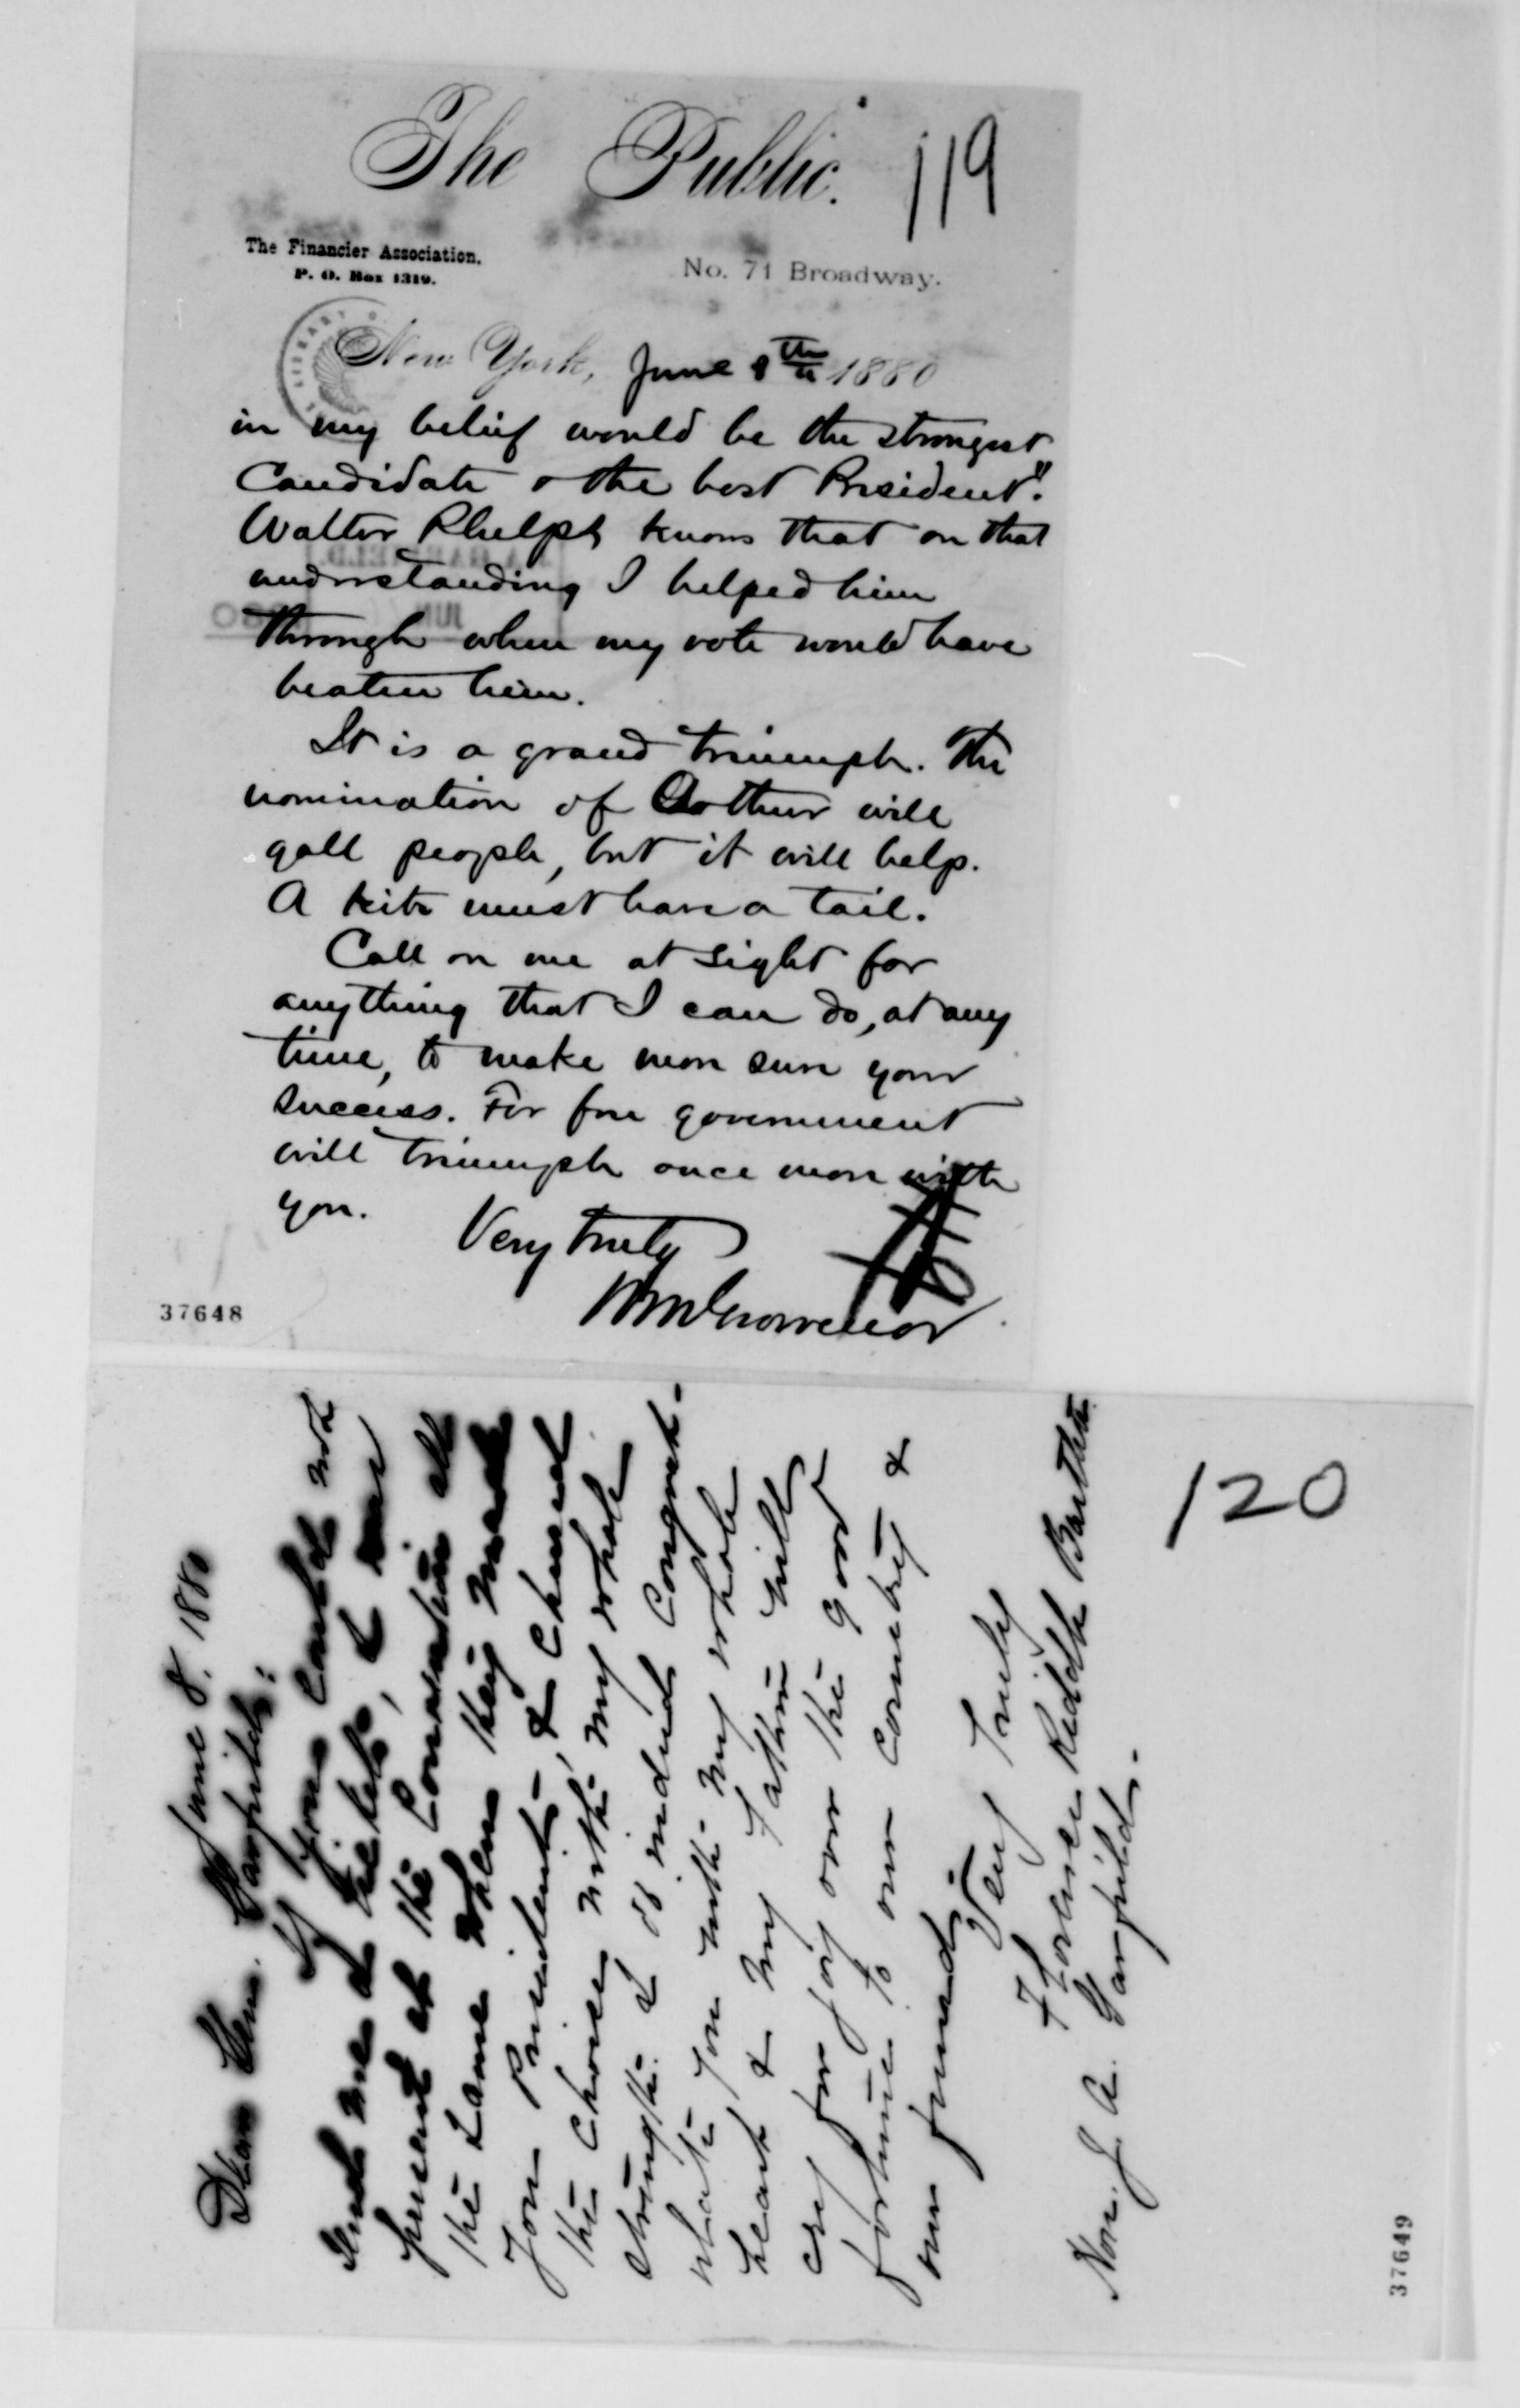 The Public.
119
The Financier Association.
P. O. Box 1319.
No. 71 Broadway.
New York, June 8th 1880
in my belief would be the strongest
Candidate & the best President".
Walter Phelps knows that on that
understanding I helped him
through when my vote would have
beaten him.
It is a grand triumph. The
nomination of Arthur will
gall people, but it will help.
A kite must have a tail.
Call on me at sight for
anything that I can do, at any
time, to make more sure your
success. For free government
will triumph once more with
you.
Very truly
Wm Grosvenor
37648
120
June 8. 1880
Dear Gen. Garfield:
If you could not
send me tickets, I was
present at the Convention all
the same when they made
you President, & cheered
the choice with my whole
strength. I do indeed congrat-
ulate you with my whole
heart & my father will
cry for joy over the good
fortune to our country &
our friend.
Very truly
Florence Riddle Bartlett
Hon. J. A. Garfield.
37649